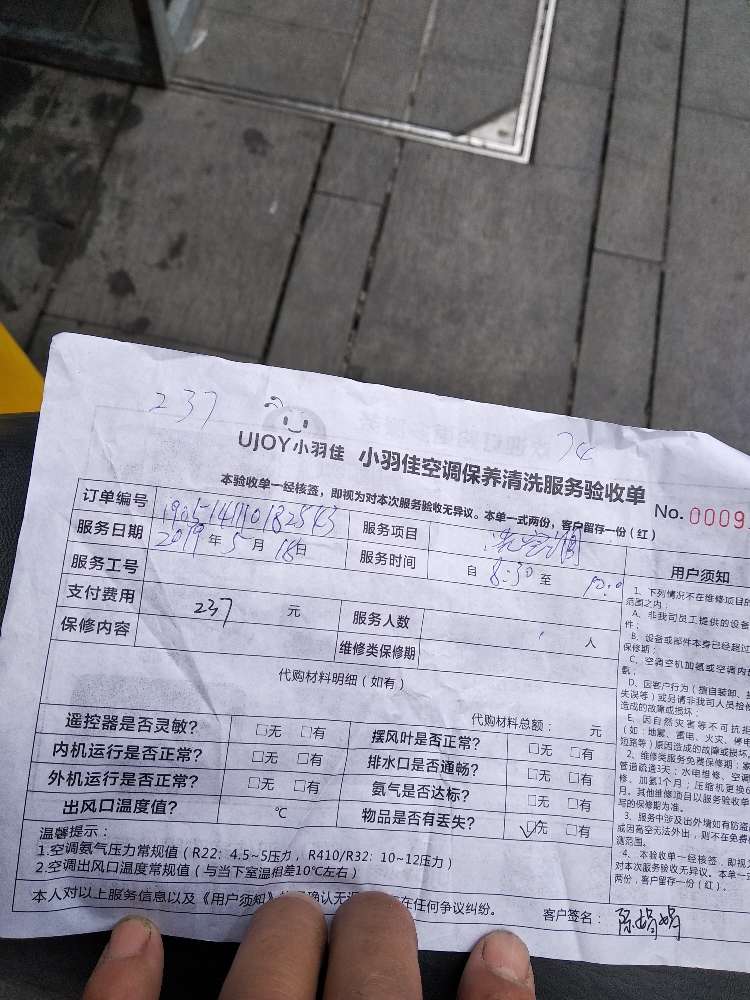 237
74
UJOY小羽佳 小羽佳空调保养清洗服务验收单
本验收单一经核签，即视为对本次服务验收无异议。本单一式两份，客户留存一份(红)
No. 0009
订单编号 服务项目 洗空调
服务日期 2019年5月18日 服务时间 自 8:30 至
服务工号
支付费用 237 元 服务人数 人
保修内容 维修类保修期
代购材料明细 (如有)
代购材料总额： 元
遥控器是否灵敏? □无 □有 摆风叶是否正常? □无 □有
内机运行是否正常? □无 □有 排水口是否通畅? □无 □有
外机运行是否正常? □无 □有 氨气是否达标? □无 □有
出风口温度值? ℃ 物品是否有丢失? □无 □有
温馨提示：
1.空调氨气压力常规值（R22：4.5~5压力，R410/R32：10~12压力）
2.空调出风口温度常规值（与当下室温相差10℃左右）
本人对以上服务信息以及《用户须知》 确认无 在任何争议纠纷。
客户签名：
用户须知
1、下列情况不在维修项目的
范围之内：
A、非我司员工提供的设备
件；
B、设备或部件本身已经超过
保修期；
C、空调空机加氨或空调内
氨；
D、因客户行为（擅自装卸、
失误等）或另请非我司人员检修
造成的故障或损坏；
E、因自然灾害等不可抗拒
（如：地震、雷电、火灾、停电
短路等）原因造成的故障或损坏。
2、维修类服务免费保修期：
管道疏通3天；水电维修、空调
修、加氨1个月；压缩机更换6
月。其他维修项目以服务验收单
写的保修期为准。
3、服务中涉及出外墙如有防盗
或因高空无法外出，则不在免费
范围。
4、本验收单一经核签，即视为
对本次服务验收无异议。本单一式
两份，客户留存一份（红）。